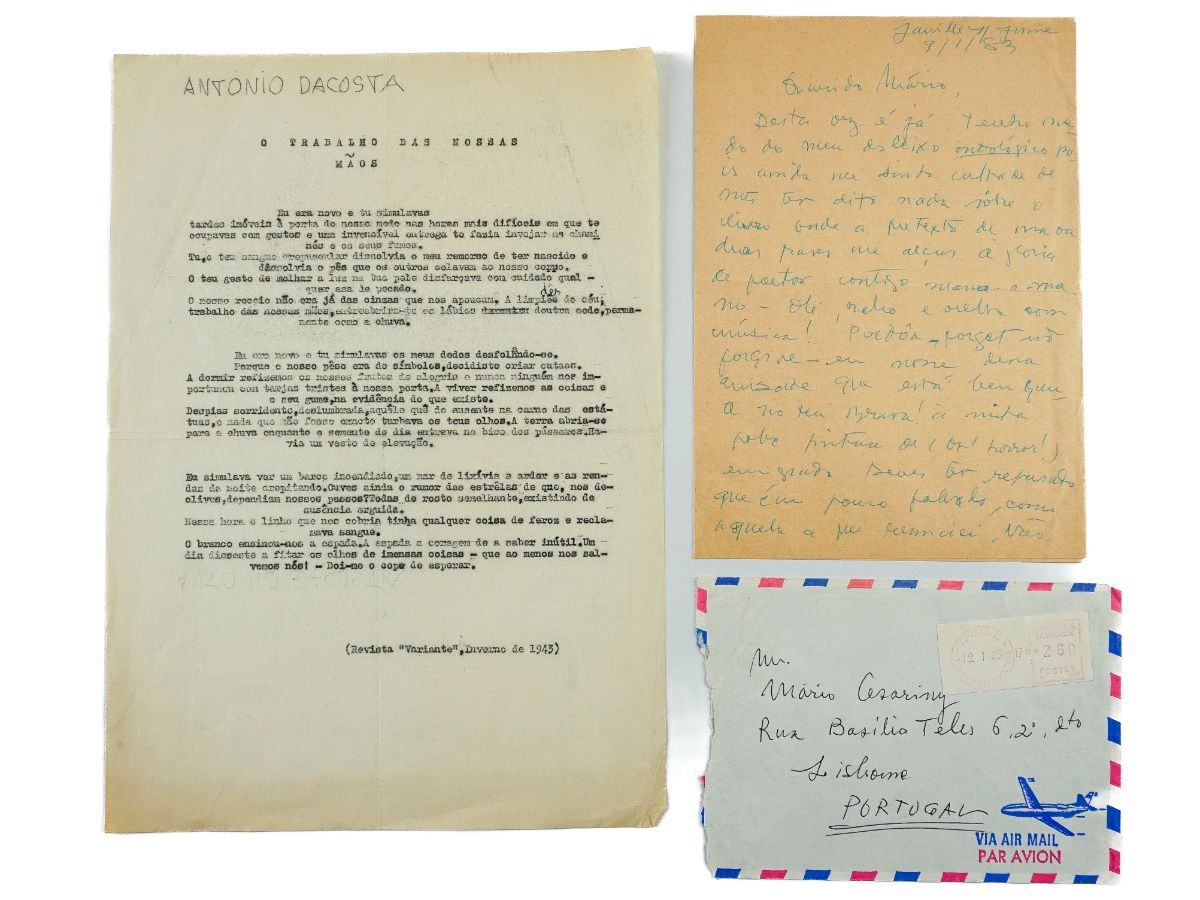 ANTÓNIO DACOSTA
O TRABALHO DAS NOSSAS
MÃOS
Eu era novo e tu simulavas
tardes imóveis à porta do nosso medo nas horas mais difíceis em que te
ocupavas com gestos e uma invencível entrega te fazia invejar as chami
nés e os seus fumos.
Tu,o teu sangue crepuscular dissolvia o meu remorso de ter nascido e
dissolvia o pês que os outros colavam ao nosso corpo.
O teu gesto de molhar a luz na tua pele disfarçava com cuidado qual -
quer asa de pecado.
O nosso receio não era já das cinzas que nos apoucam. A limpidez do céu,
trabalho das nossas mãos,entreabria-te os lábios doutra sede,perma-
nente como a chuva.
Eu era novo e tu simulavas os meus dedos desfolhando-se.
Porque o nosso pêso era de símbolos,decidiste criar outros.
A dormir refizemos os nossos frutos de alegria e nunca ninguém nos im-
portunou com tarjas tristes à nossa porta.A viver refizemos as coisas e
o seu gume,na evidência do que existe.
Despias sorridente,deslumbrada,aquêle quê de ausente na carne das está-
tuas,e nada que não fosse exacto turbava os teus olhos.A terra abria-se
para a chuva enquanto a semente do dia entrava no bico dos pássaros.Ha-
via um vesto de elevação.
Eu simulava ver um barco incendiado,um mar de lixívia a arder e as ren-
das da noite crepitando.Ouves ainda o rumor das estrêlas de que, nos de-
clives,dependiam nossos passos?Todas de rosto semelhante,existindo de
ausência erguida.
Nessa hora o linho que nos cobria tinha qualquer coisa de feroz e recla-
mava sangue.
O branco ensinou-nos a espada.A espada a coragem de a saber inútil.Um
dia disseste a fitar os olhos de imensas coisas - que ao menos nos sal-
vemos nós! - Doi-me o cope de esperar.
(Revista "Variante",Inverno de 1943)
9/1/83
Querido Mário,
Desta vez é já. Tenho
do do meu desleixo ontológico po
is ainda me sinto culpado de
não ter dito nada sôbre o
livro onde a pretexto de uma ou
duas frases me alças à glória
de poeta contigo mano-a-ma
no - Olé, velho e
música! Perdôa - forget not
forgive - em nome dessa
amizade que está bem quen
te no teu à minha
pobre pintura de (oh! horror!)
emigrado. Deves ter reparado
que é um pouco falado, como
aquela a que renunciei, Não
12 1 83
280
POSTES
Mr.
Mário Cesariny
Rua Basílio Teles 6, 2º, dto
Lisbonne
PORTUGAL
VIA AIR MAIL
PAR AVION